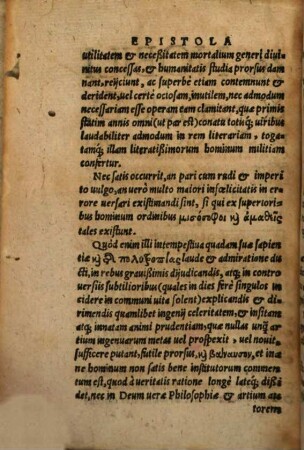 EPISTOLA
utilitatem & neceßitatem mortalium generi diui
nitus conceßas, & humanitatis studia prorsus dam
nant, reijciunt, ac superbè etiam contemnunt &
derident, uel certè ociosam, inutilem, nec admodum
necessariam esse operam eam clamitant, quæ primis
statim annis omni (ut par est) conatu totisq; uiribus
laudabiliter admodum in rem literariam, togatamq;
illam literatißimorum hominum militiam
confertur.
Nec satis occurrit, an pari cum rudi & imperi
to uulgo, an uerò multo maiori infœlicitatis in er
rore uersari existimandi sint, si qui ex superiori=
bus hominum ordinibus μισόσοφοι κ̀ ἀμαθεῖς
tales existunt.
Quòd enim illi intempestiua quadam suæ sapien
tiæ κ̀ laude & admiratione du
cti, in rebus grauißimis dijudicandis, atq; in contro
uersiis subtilioribus (quales in dies ferè singulos in
cidere in communi uita solent) explicandis & di=
rimendis quamlibet ingenij celeritatem, & insitam
atq; innatam animi prudentiam, quæ nullas unq̃ ar
tium ingenuarum metas uel prospexit, uel nouit,
sufficere putant, futile prorsus, κ̀ βάναυσον, et ina
ne hominum non satis bene institutorum commen
tum est, quod à ueritatis ratione longè lateq; dißi=
det, nec in Deum ueræ Philosophiæ & artium au
torem